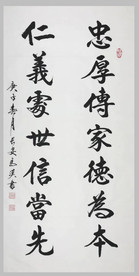 忠厚傳家德為本
仁義處世信當先
庚子春月